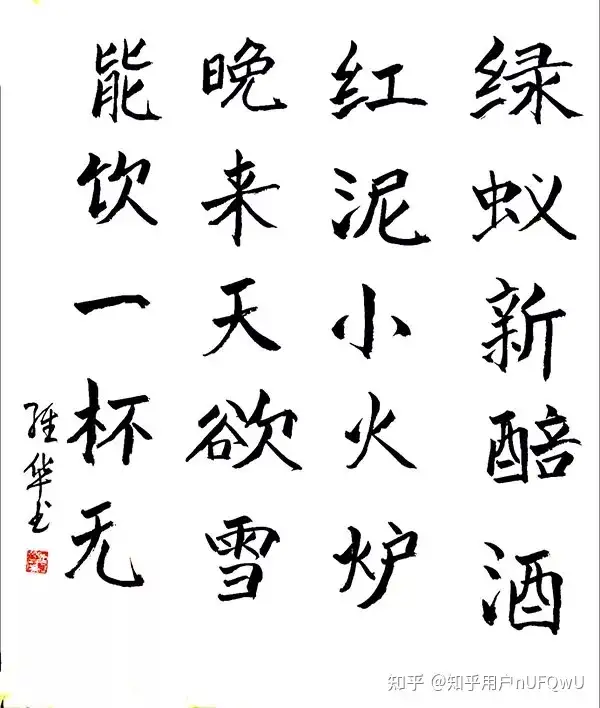 绿蚁新醅酒
红泥小火炉
晚来天欲雪
能饮一杯无
维华书
知乎 @知乎用户nUFQwU